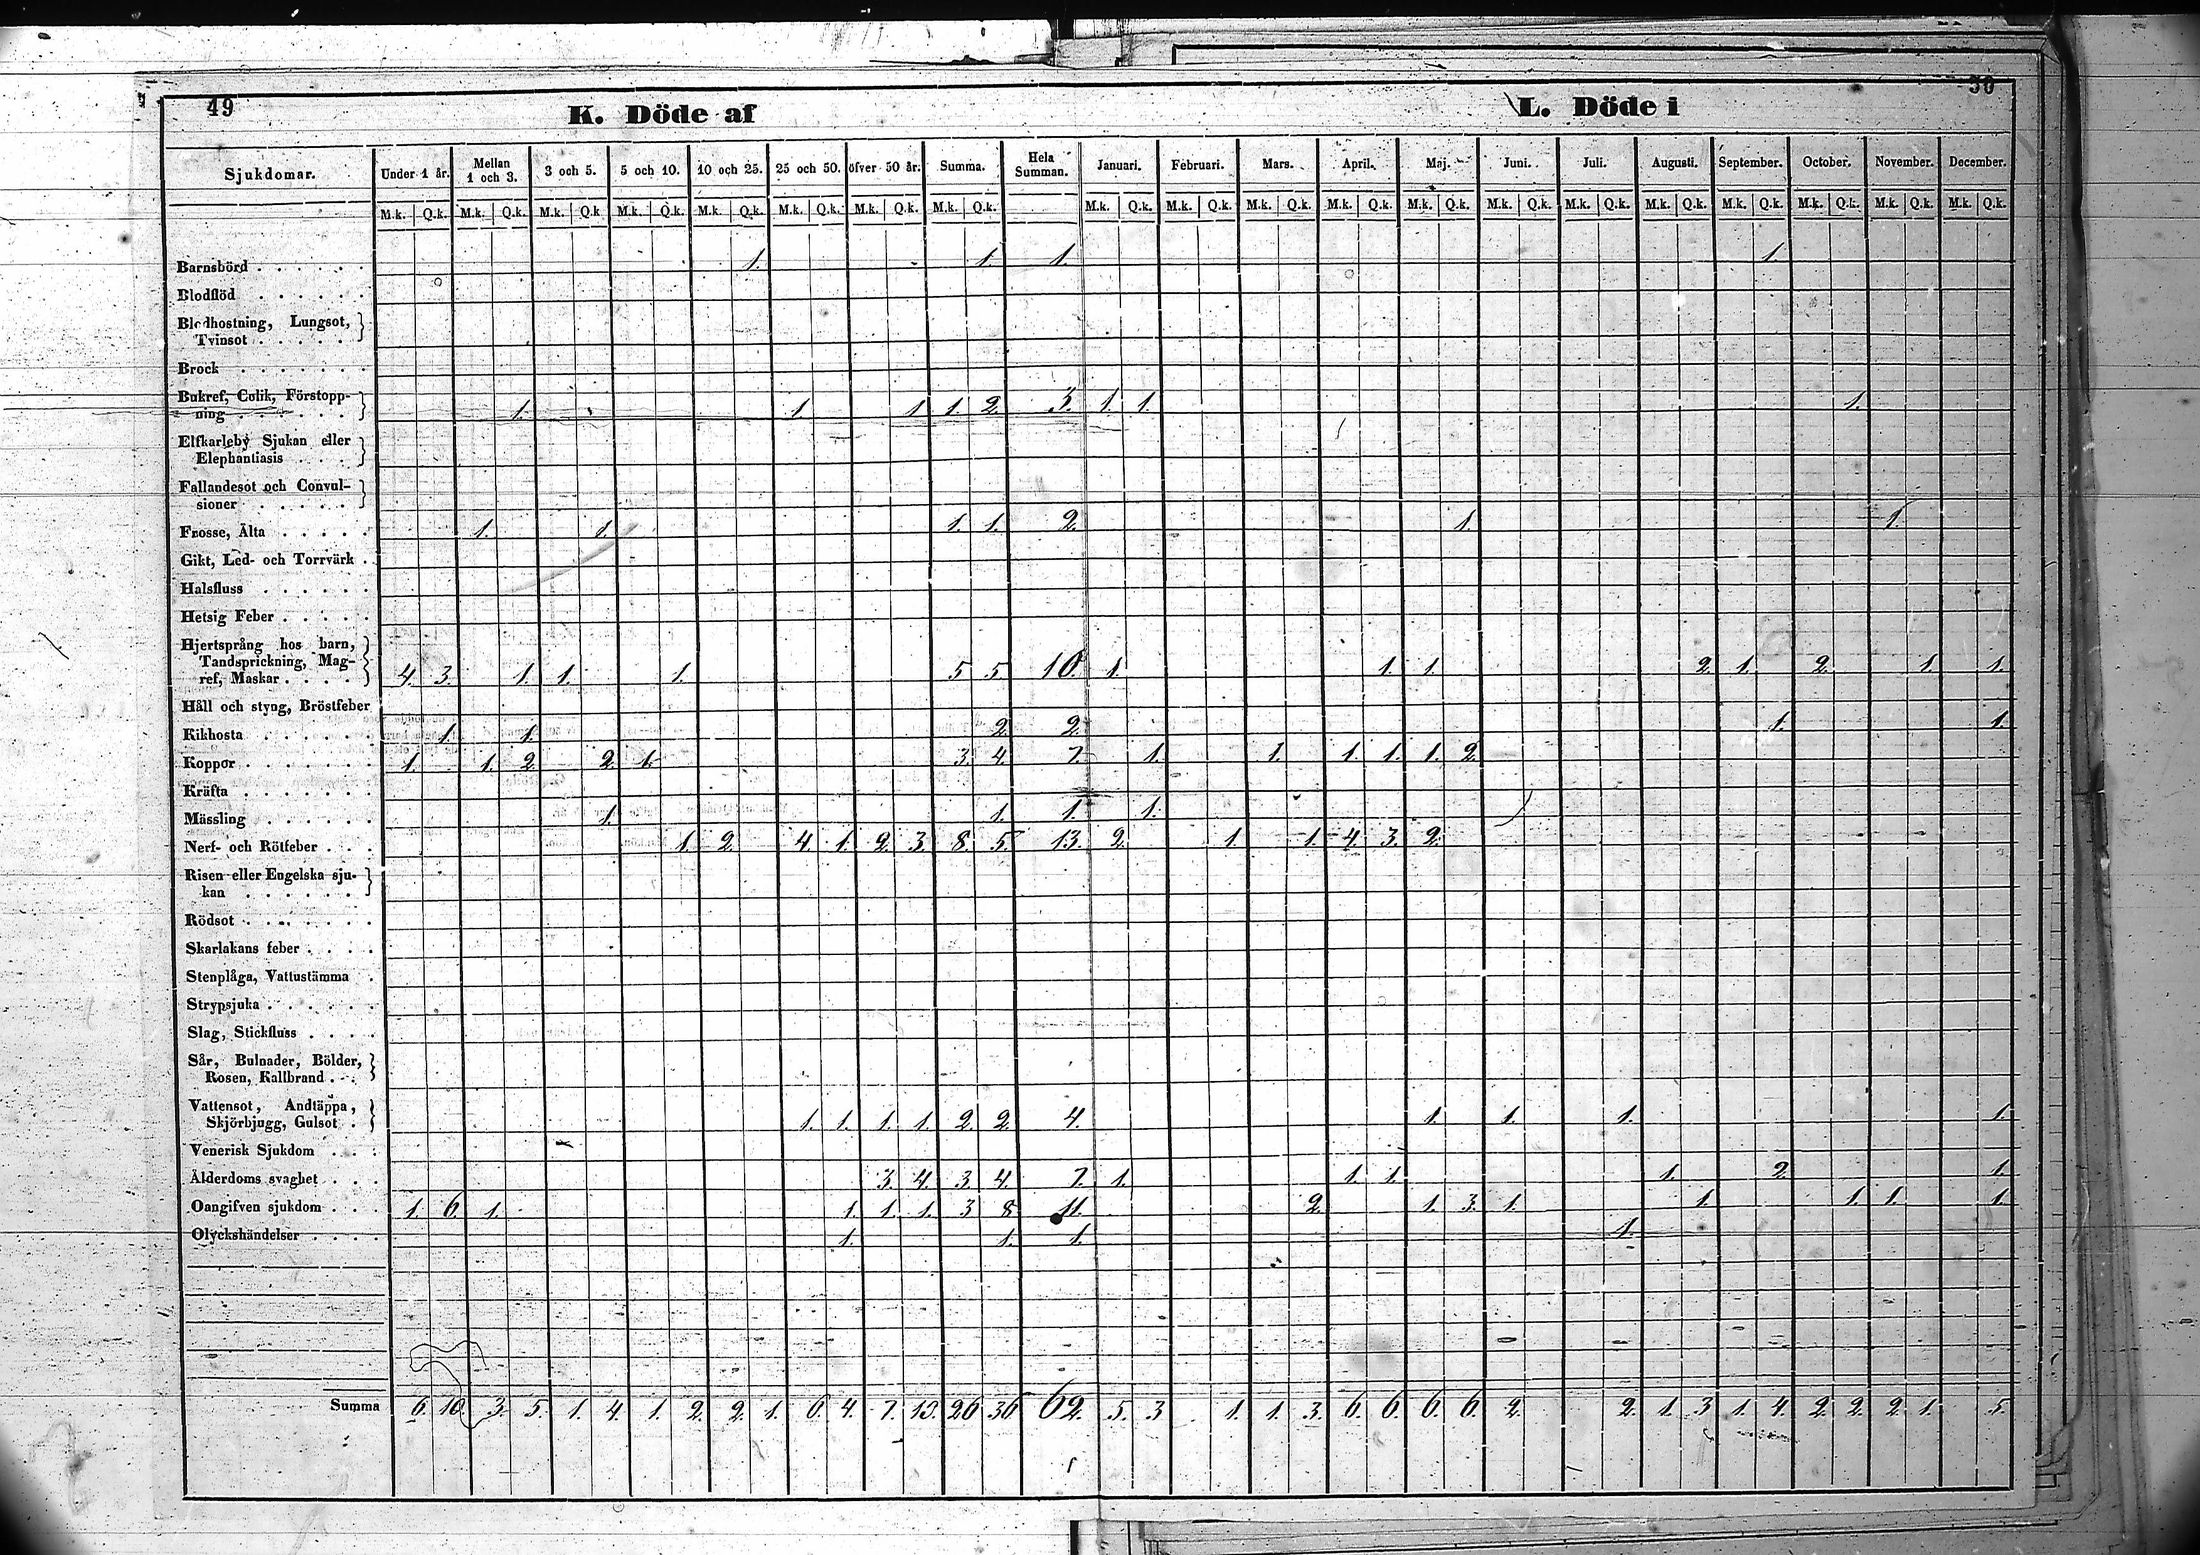 49 50
K. Döde af L. Döde i
Sjukdomar. Under 1 år. Mellan 1 och 3. 3 och 5. 5 och 10. 10 och 25. 25 och 50. öfver 50 år. Summa. Hela Summan. Januari. Februari. Mars. April. Maj. Juni. Juli. Augusti. September. October. November. December.
M.k. Q.k. M.k. Q.k. M.k. Q.k M.k. Q.k. M.k. Q.k. M.k. Q.k. M.k. Q.k. M.k. Q.k. M.k. Q.k. M.k. Q.k. M.k. Q.k. M.k. Q.k. M.k. Q.k. M.k. Q.k. M.k. Q.k. M.k. Q.k. M.k. Q.k. M.k. Q.k. M.k. Q.k. M.k. Q.k.
Barnsbörd . . . . . . 1. 1. 1. 1.
Blodflöd . . . . . .
Blodhostning, Lungsot,
Tvinsot . . . . .
Brock . . . . . . .
Bukref, Colik, Förstopp-
ning . . . . . . 1. 1. 1. 1. 2. 3. 1. 1. 1.
Elfkarleby Sjukan eller
Elephantiasis . . .
Fallandesot och Convul-
sioner . . . . .
Frosse, Älta . . . . . 1. 1. 1. 1. 2. 1. 1.
Gikt, Led- och Torrvärk .
Halsfluss . . . . . .
Hetsig Feber . . . . .
Hjertsprång hos barn,
Tandsprickning, Mag-
ref, Maskar . . . . 4. 3. 1. 1. 1. 5. 5. 10. 1. 1. 1. 2. 1. 2. 1. 1.
Håll och styng, Bröstfeber
Kikhosta . . . . . . 1. 1. 2. 2. 1. 1.
Koppor . . . . . . . 1. 1. 2. 2. 1. 3. 4. 7. 1. 1. 1. 1. 1. 2.
Kräfta . . . . . . .
Mässling . . . . . . 1. 1. 1. 1.
Nerf- och Rötfeber . . . 1. 2. 4. 1. 2. 3. 8. 5. 13. 2. 1. 1. 4. 3. 2.
Risen eller Engelska sju-
kan . . . . . .
Rödsot . . . . . . .
Skarlakans feber . . . .
Stenplåga, Vattustämma .
Strypsjuka . . . . . .
Slag, Stickfluss . . . .
Sår, Bulnader, Bölder,
Rosen, Kallbrand . .
Vattensot, Andtäppa,
Skjörbjugg, Gulsot . 1. 1. 1. 1. 2. 2. 4. 1. 1. 1. 1.
Venerisk Sjukdom . . .
Ålderdoms svaghet . . . 3. 4. 3. 4. 7. 1. 1. 1. 1. 2. 1.
Oangifven sjukdom . . . 1. 6. 1. 1. 1. 1. 3. 8. 11. 2. 1. 3. 1. 1. 1. 1. 1.
Olyckshändelser . . . . 1. 1. 1. 1.
Summa 6. 10. 3. 5. 1. 4. 1. 2. 2. 1. 6. 4. 7. 10. 26. 36. 62. 5. 3. 1. 1. 3. 6. 6. 6. 6. 2. 2. 1. 3. 1. 4. 2. 2. 2. 1. 5.